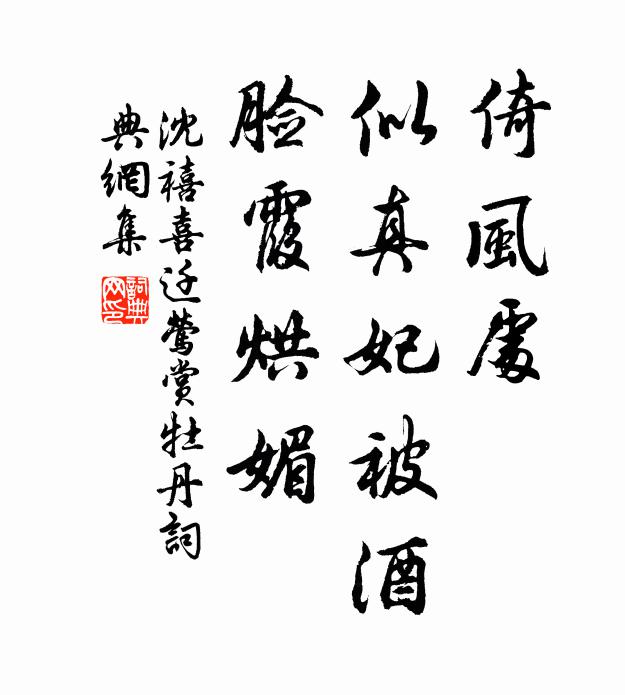 倚風處
似真妃被酒
臉霞烘媚
沈禧喜迁鶯賞牡丹詞
典網集
詞典網印